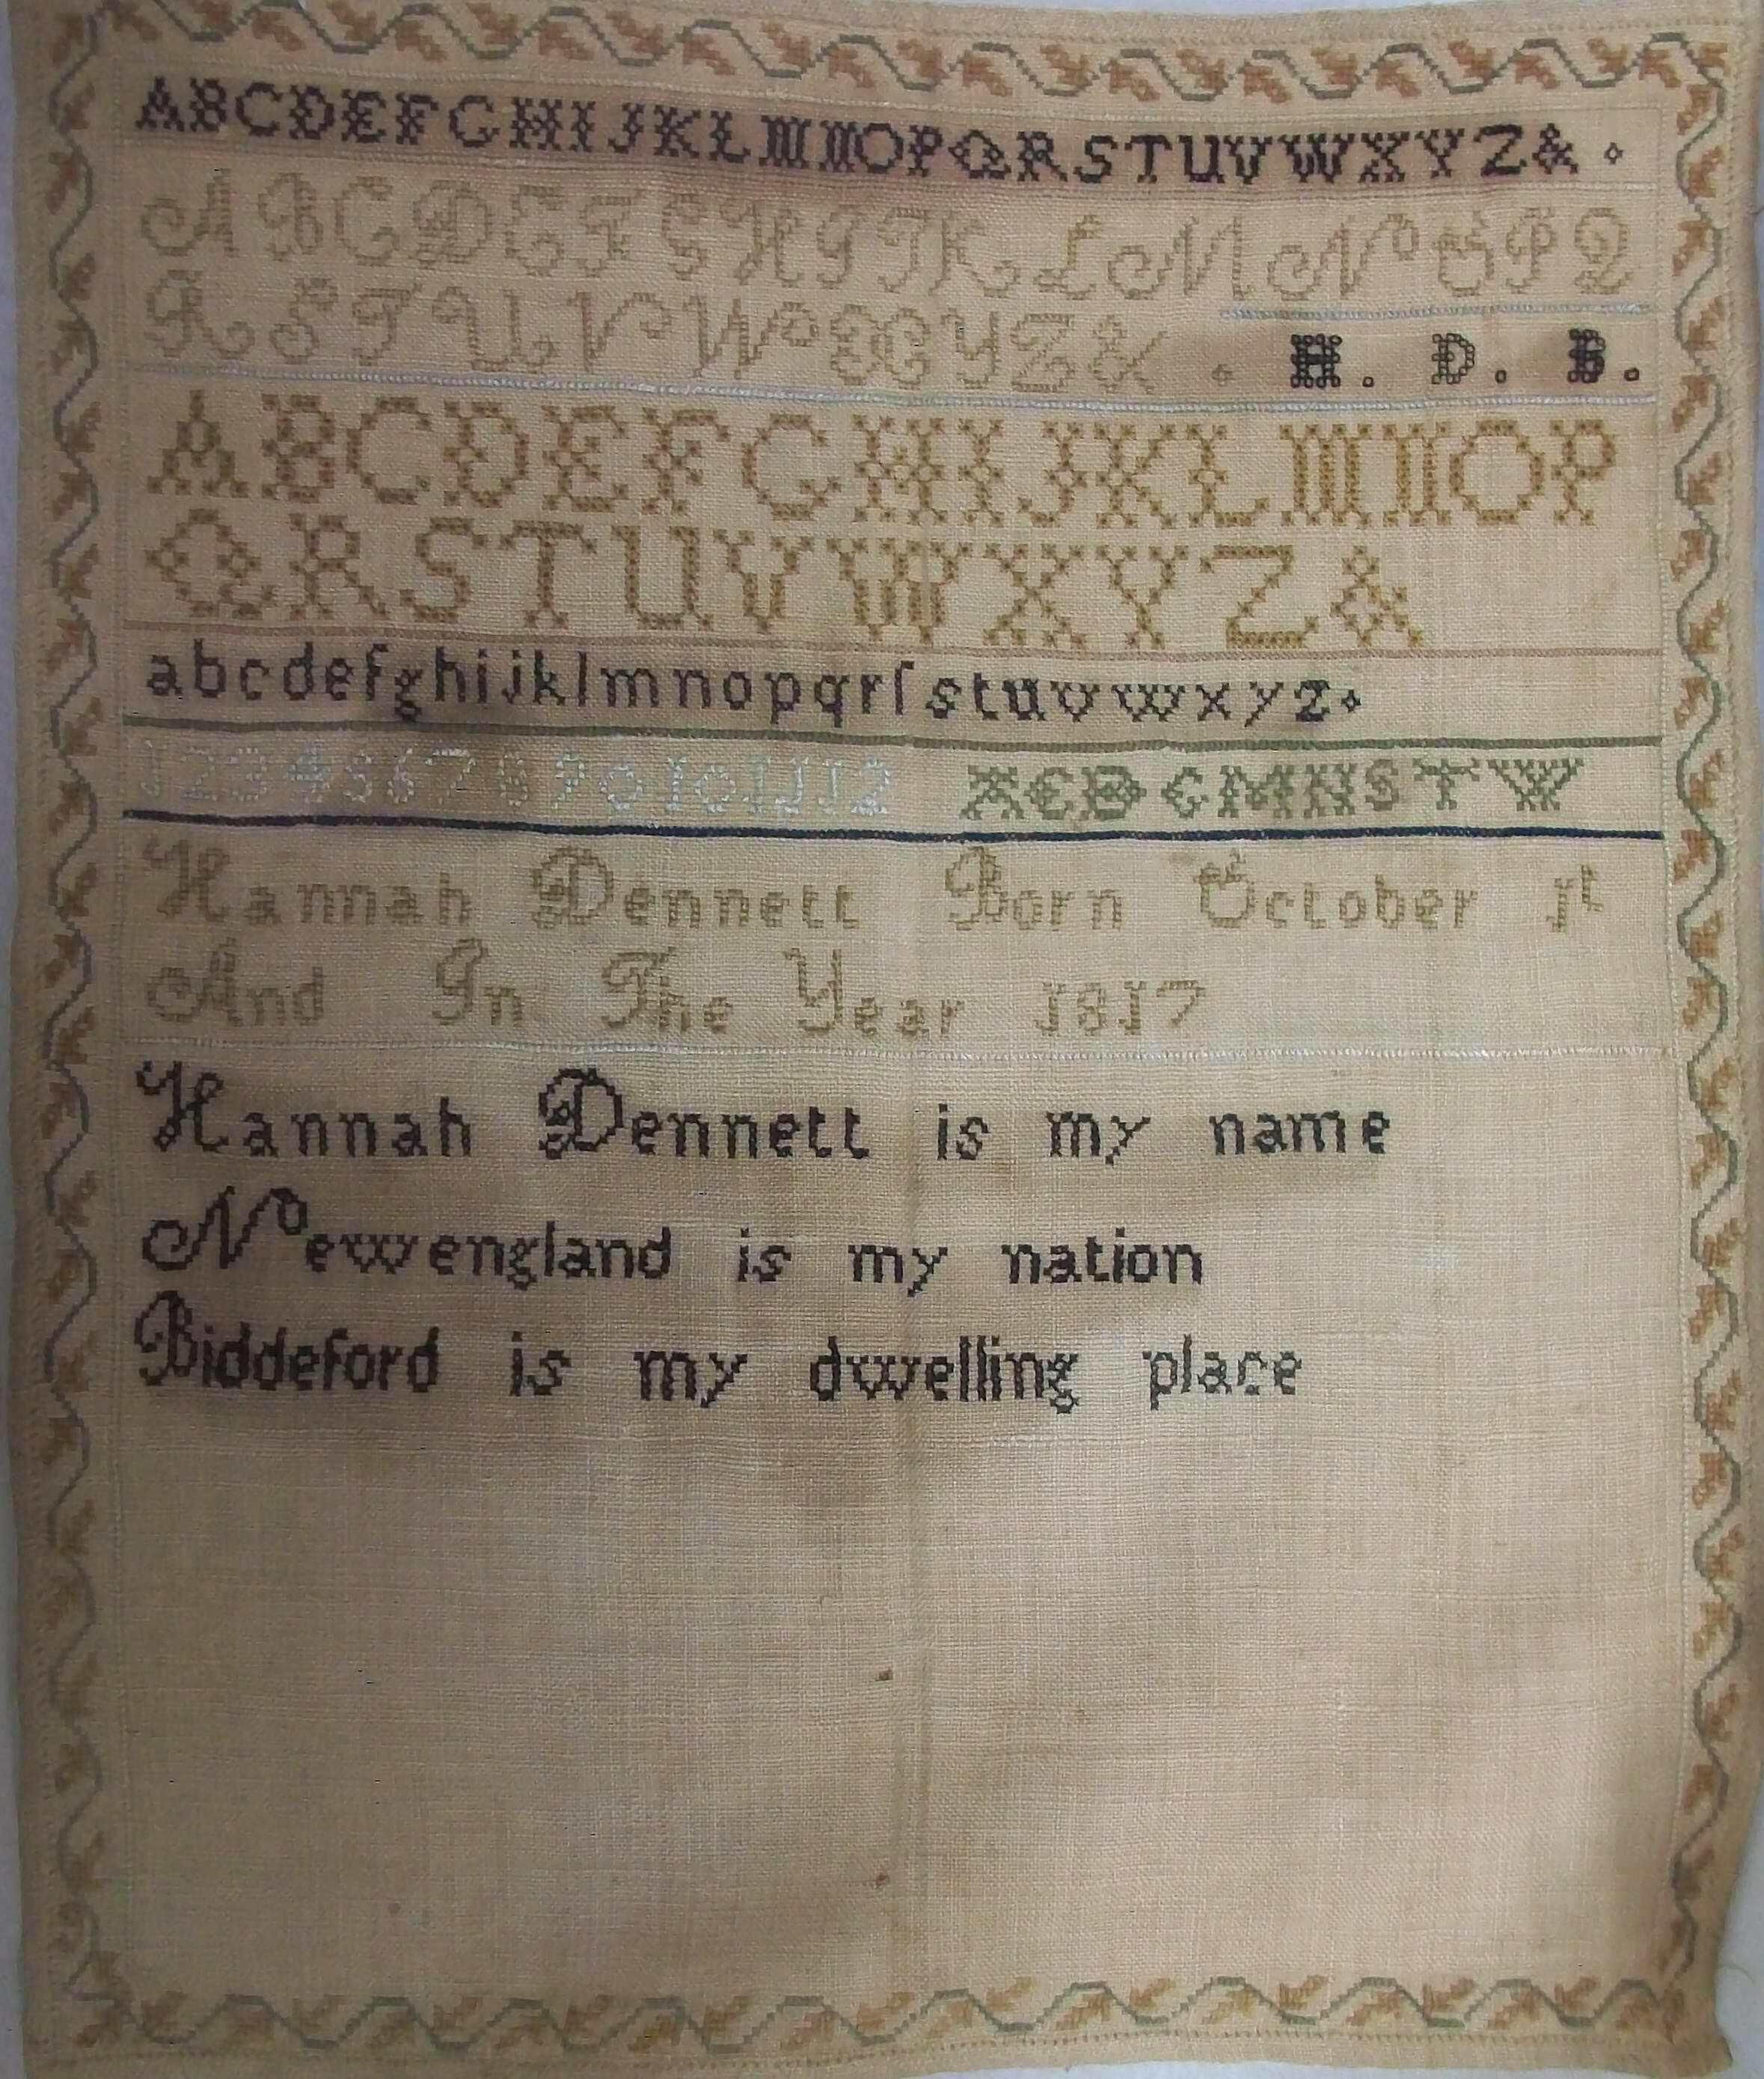 ABCDEFGHIJKLMNOPQRSTUVWXYZ&.
ABCDEFGHIJKLMNOPQ
RSTUVWXYZ&. H. D. B.
ABCDEFGHIJKLMNOP
QRSTUVWXYZ&
abcdefghijklmnopqrſstuvwxyz.
123456789010111112 ÆCDGMNSTW
Hannah Dennett Born October 1t
And In The Year 1817
Hannah Dennett is my name
Newengland is my nation
Biddeford is my dwelling place